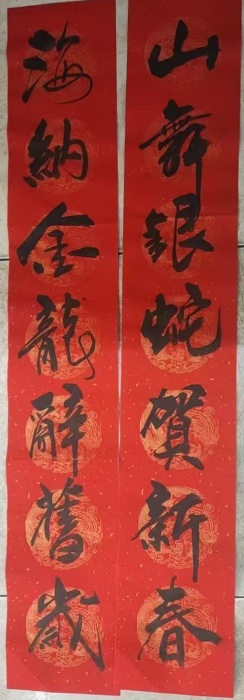 山舞銀蛇賀新春
海納金龍辭舊歲